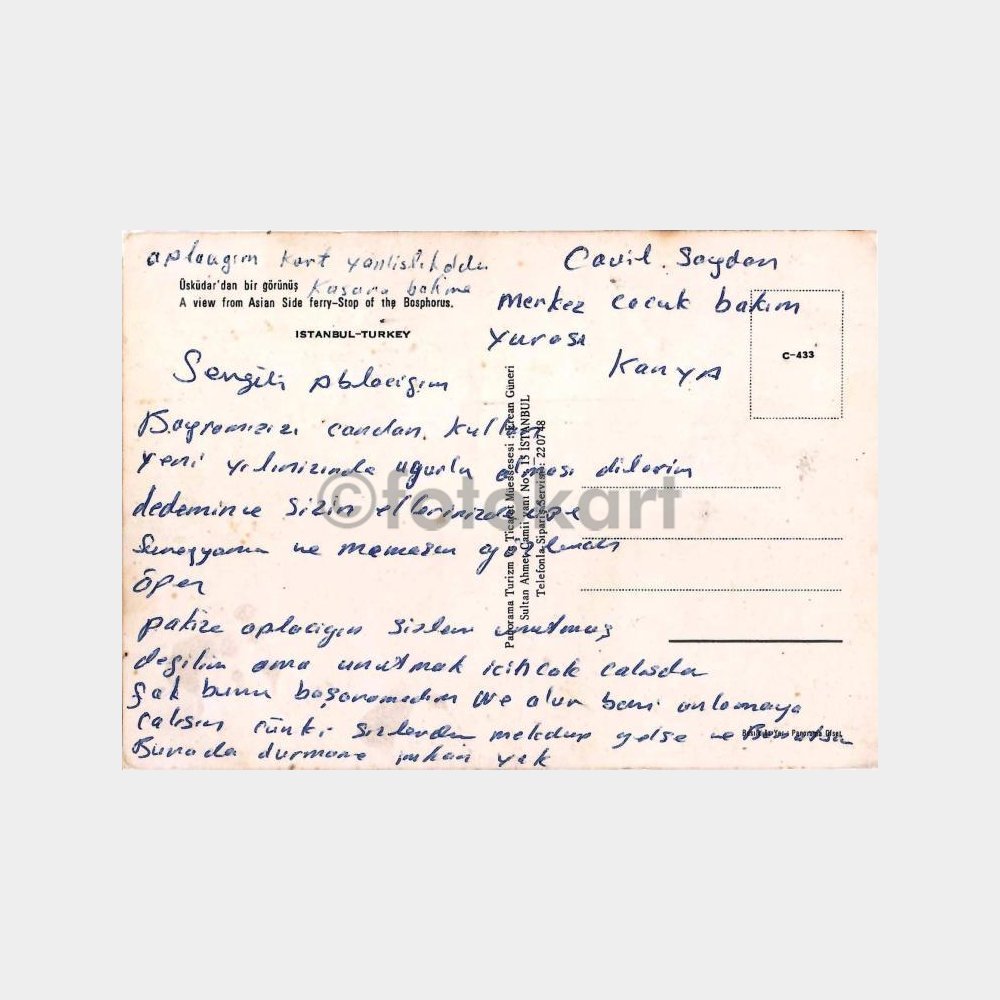 aplacıgım kart yanlislıkoldu
Kusura bakma
Üsküdar'dan bir görünüş
A view from Asian Side ferry–Stop of the Bosphorus.
ISTANBUL–TURKEY
Cavil. Saydan
Merkez cocuk bakım
yurası
Kanya
C–433
Sevgili ablacigım
Bayramızızı candan. kutlar
yeni yılınızında ugurlu olması dilerim
dedemin ve sizin ellerinizden öpe
ve gözlerinden
öper
patize aplacigım sizleri unutmuş
degilim ama unutmak icin cok calısda
fak bunu başaramadım ne olur beni anlamaya
calısın cünki sizlerden mekdup gelse ne
Burada durmama imkan yok
Panorama Turizm ve Ticaret Müessesesi : Ercan Güneri
Sultan Ahmet Camii yanı No. 15 İSTANBUL
Telefonla Sipariş Servisi: 220748
©fotokart